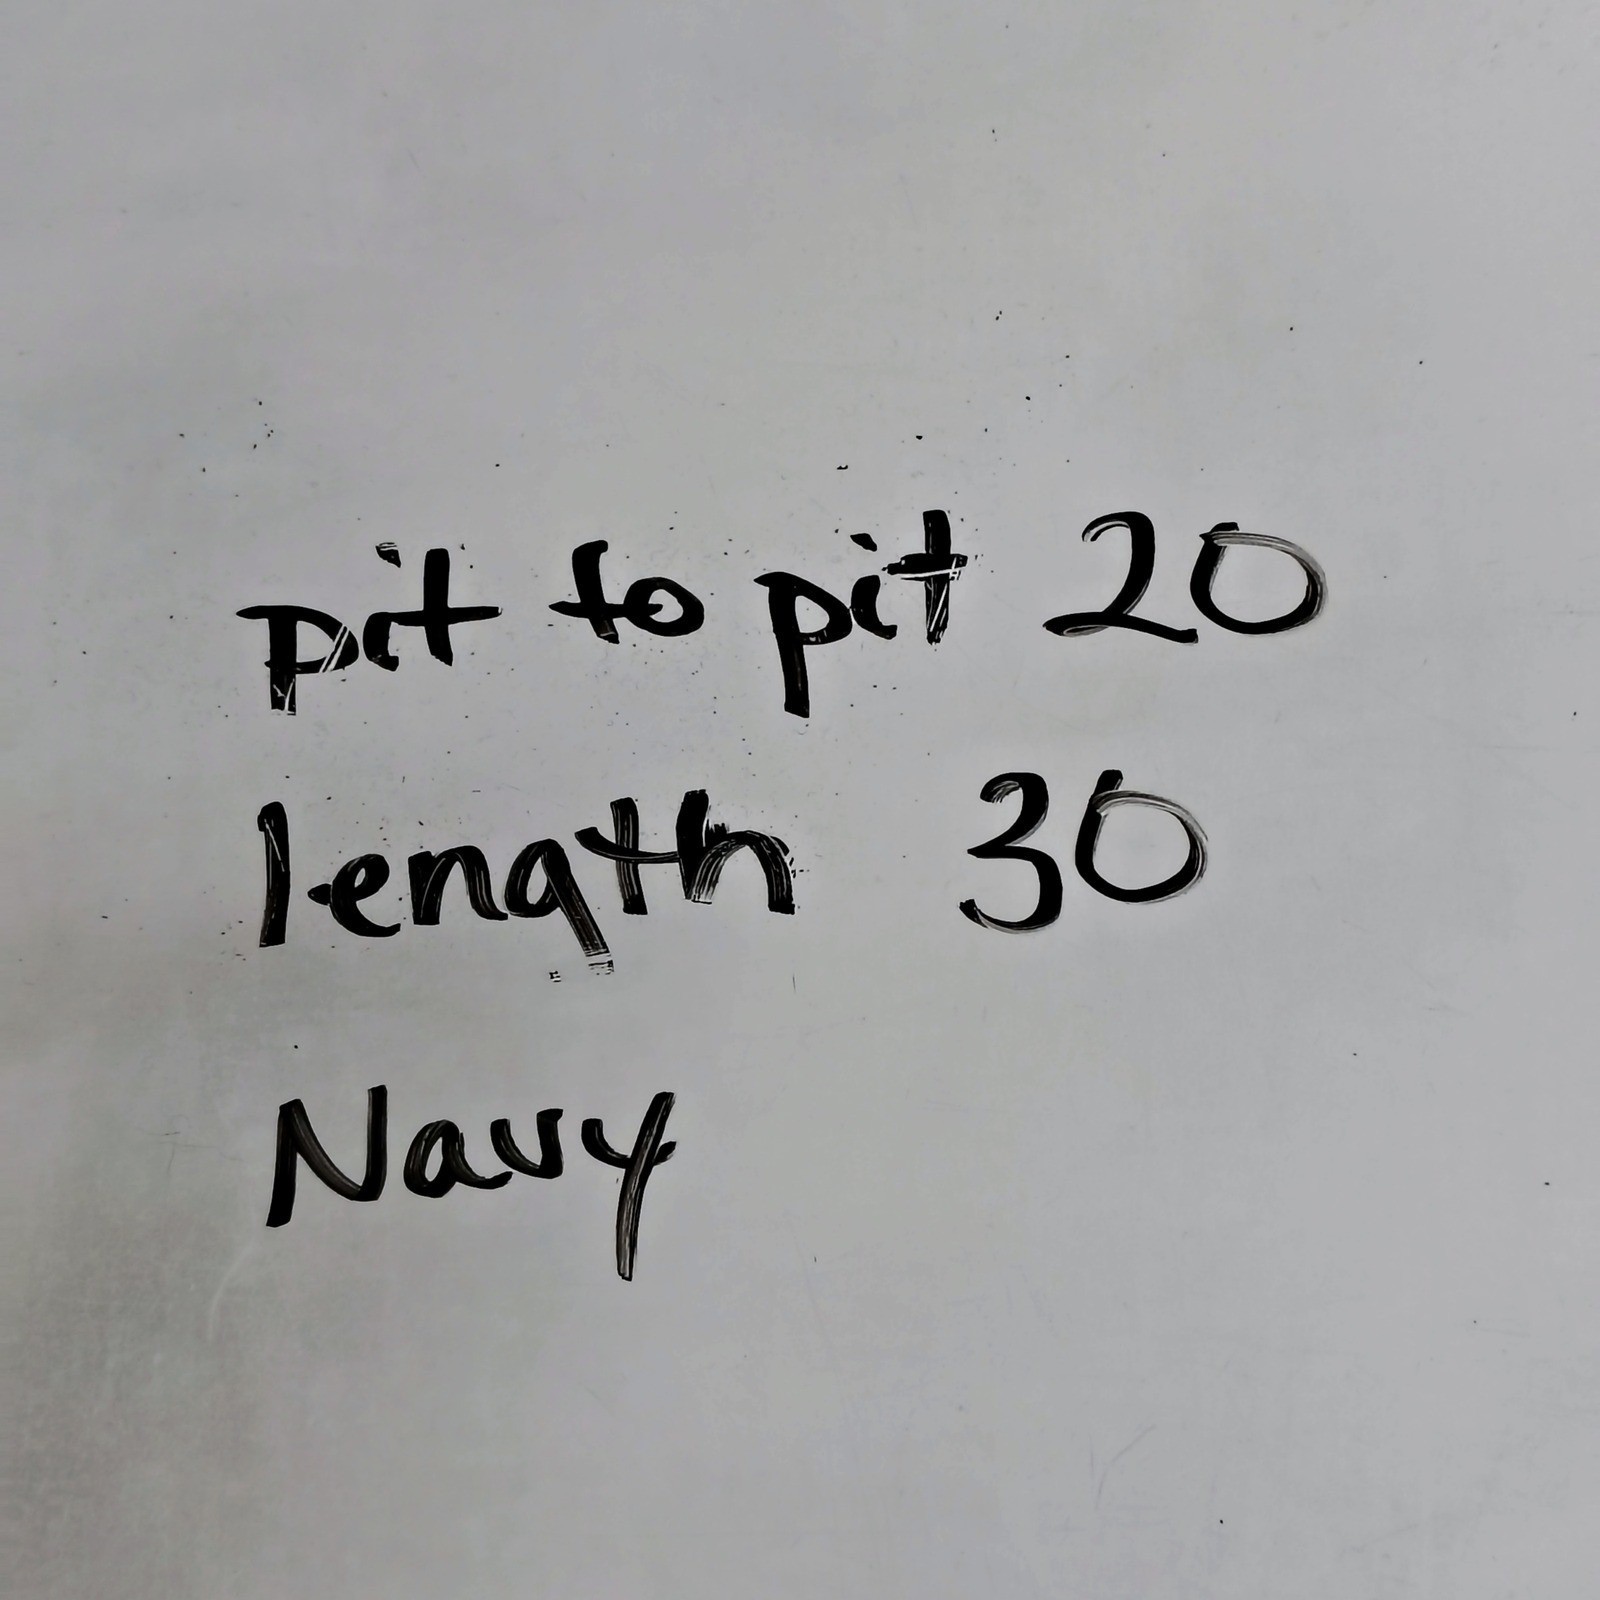 pit to pit 20
length 30
Navy